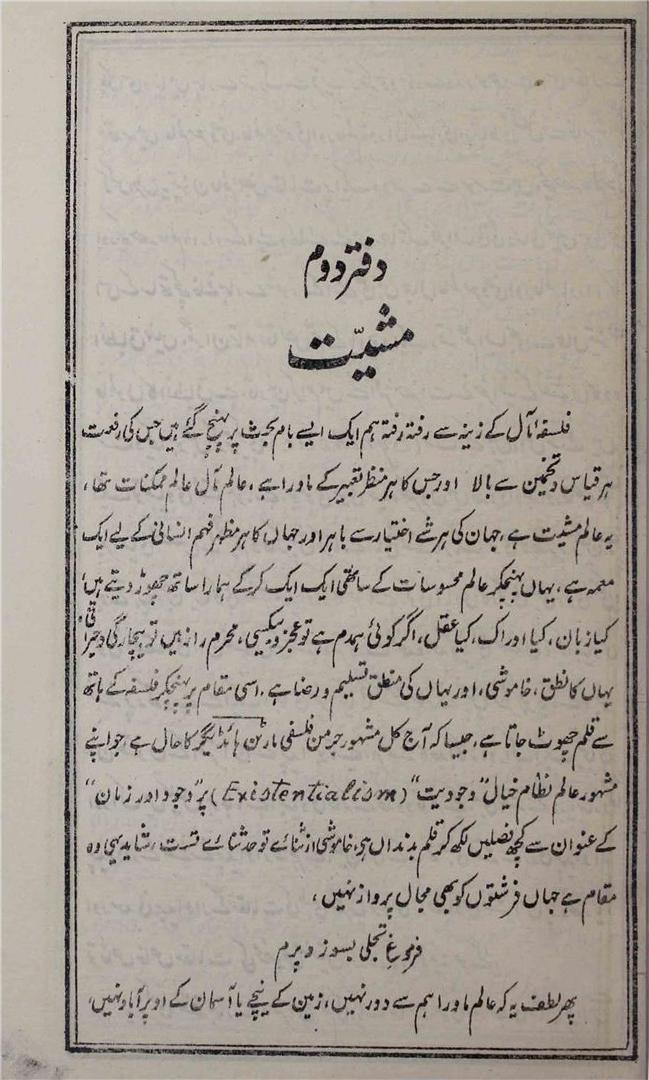 دفتر دوم
مشیّت
فلسفۂ مآل کے زینہ سے رفتہ رفتہ ہم ایک ایسے بام بحث پر پہنچ گئے ہیں جس کی رفعت
ہر قیاس و تخمین سے بالا اور جس کا ہر منظر تعبیر کے ماورا ہے، عالم مآل عالم ممکنات تھا،
یہ عالم مشیت ہے، جہان کی ہر شے اختیار سے باہر اور جہاں کا ہر مظہر فہم انسانی کے لیے ایک
معمہ ہے، یہاں پہنچکر عالم محسوسات کے ساتھی ایک ایک کر کے ہمارا ساتھ چھوڑ دیتے ہیں،
کیا زبان، کیا ادراک، کیا عقل، اگر کوئی ہمدم ہے تو عجز و بیکسی، محرم راز ہیں تو بیچارگی و حیرانی،
یہاں کا نطق، خاموشی، اور یہاں کی منطق تسلیم و رضا ہے۔ اسی مقام پر پہنچکر فلسفہ کے ہاتھ
سے قلم چھوٹ جاتا ہے، جیسا کہ آج کل مشہور جرمن فلسفی مارٹن ہائڈیگر کا حال ہے، جو اپنے
مشہور عالم نظام خیال "وجودیت" (Existentialism) پر "وجود اور زمان"
کے عنوان سے کچھ فصلیں لکھ کر قلم بدنداں ہی، خاموشی از ثنائے تو حد ثنائے تست، شاید یہی وہ
مقام ہے جہاں فرشتوں کو بھی مجال پرواز نہیں،
فروغِ تجلی بسوزد پرم
پھر لطف یہ کہ عالم ماورا ہم سے دور نہیں، زمین کے نیچے یا آسمان کے اوپر آباد نہیں،